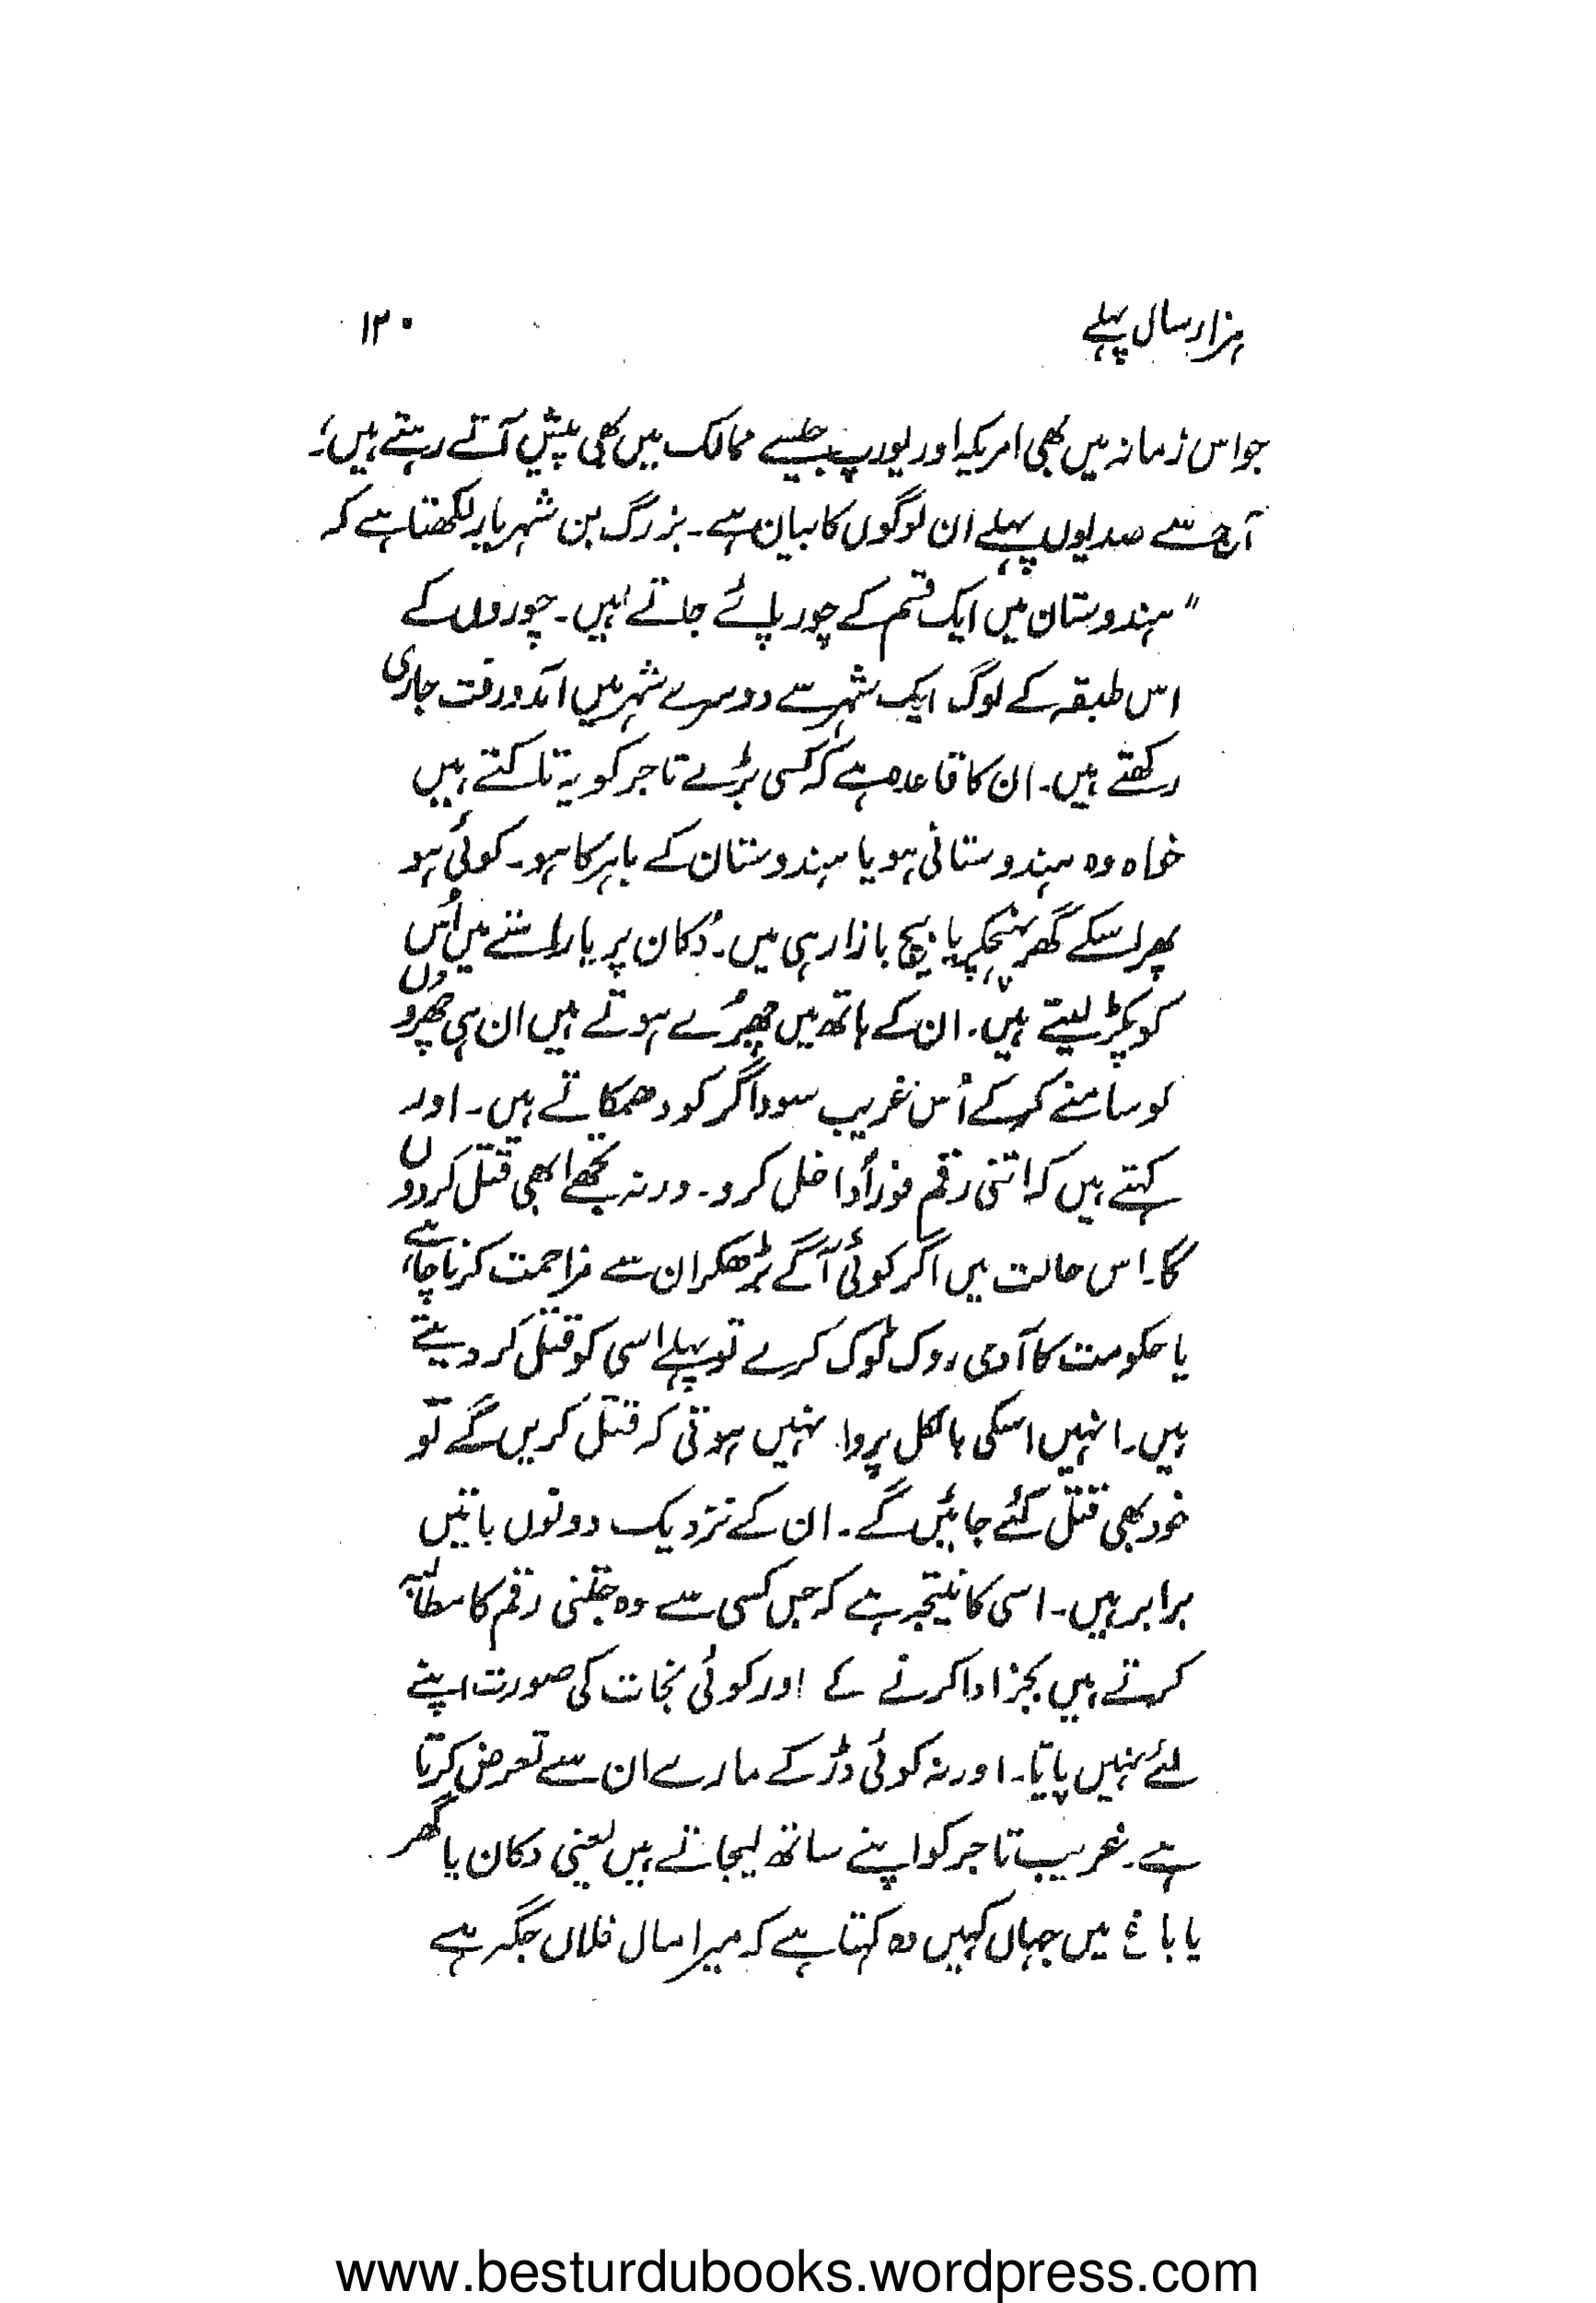 ہزار سال پہلے ۱۲۰
جو اس زمانہ میں بھی امریکہ اور یورپ جیسے ممالک میں بھی پیش آتے رہتے ہیں؛۔
آج سے صدیوں پہلے ان لوگوں کا بیان ہے۔ بزرگ بن شہریار لکھتا ہے کہ
"ہندوستان میں ایک قسم کے چور پائے جاتے ہیں۔ چوروں کے
اس طبقہ کے لوگ ایک شہر سے دوسرے شہر میں آمدورفت جاری
رکھتے ہیں۔ ان کا قاعدہ ہے کہ کسی بڑے تاجر کو یہ تاکتے ہیں
خواہ وہ ہندوستانی ہو یا ہندوستان کے باہر کا ہو۔ کوئی ہو
پھر اسکے گھر پہنچکر یا بیچ بازار ہی میں۔ دُکان پر یا راستے میں اُس
کو پکڑ لیتے ہیں۔ ان کے ہاتھ میں چھُرے ہوتے ہیں ان ہی چھروں
کو سامنے کر کے اُس غریب سوداگر کو دھمکاتے ہیں۔ اور
کہتے ہیں کہ اتنی رقم فوراً داخل کرو۔ ورنہ تجھے ابھی قتل کر دوں
گا۔ اس حالت میں اگر کوئی آگے بڑھکر ان سے مزاحمت کرنا چاہے
یا حکومت کا آدمی روک ٹوک کرے تو پہلے اسی کو قتل کر دیتے
ہیں۔ انہیں اسکی بالکل پروا نہیں ہوتی کہ قتل کریں گے تو
خود بھی قتل کئے جائیں گے۔ ان کے نزدیک دونوں باتیں
برابر ہیں۔ اسی کا نتیجہ ہے کہ جس کسی سے وہ جتنی رقم کا مطالبہ
کرتے ہیں بجز ادا کرنے کے اور کوئی نجات کی صورت اپنے
لئے نہیں پاتا۔ اور نہ کوئی ڈر کے مارے ان سے تعرض کرتا
ہے۔ غریب تاجر کو اپنے ساتھ لیجاتے ہیں یعنی دکان یا گھر
یا باغ میں جہاں کہیں وہ کہتا ہے کہ میرا مال فلاں جگہ ہے
www.besturdubooks.wordpress.com